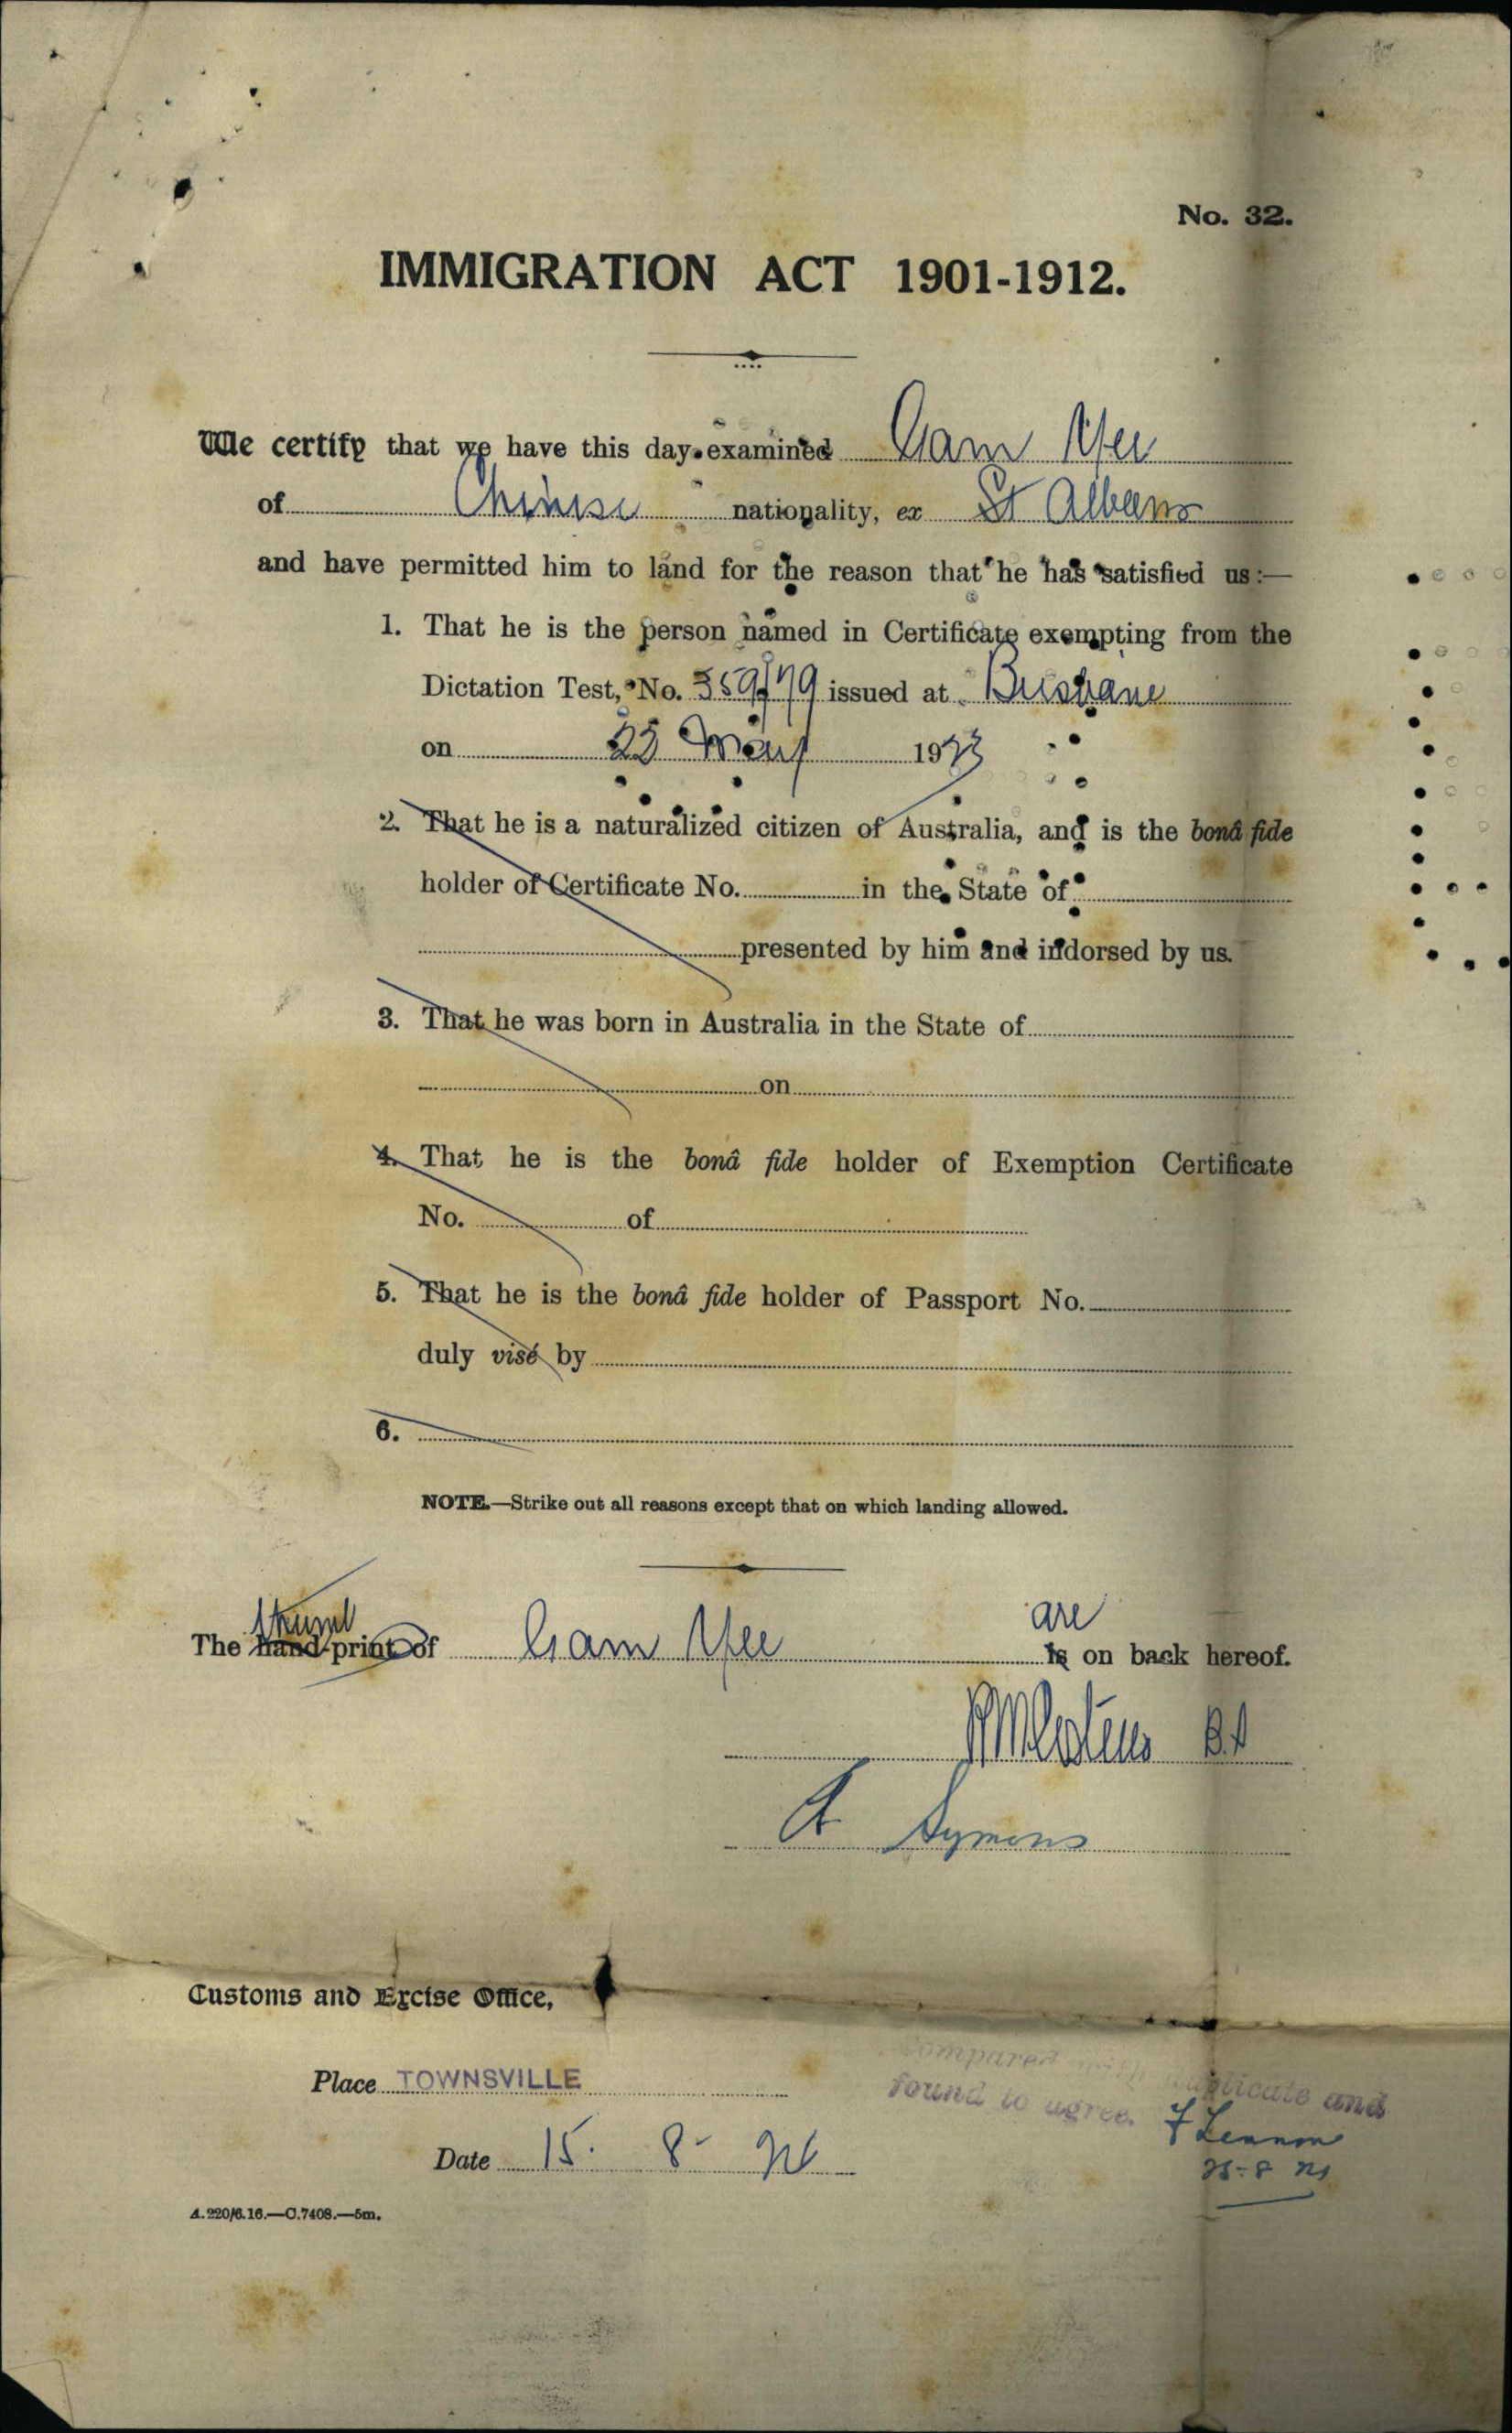 No. 32.
IMMIGRATION ACT 1901-1912.
We certify that we have this day examined Gam Yee
of Chinese nationality, ex St Albans
and have permitted him to land for the reason that he has satisfied us:—
1. That he is the person named in Certificate exempting from the
Dictation Test, No. 359/79 issued at Brisbane
on 1923
2. That he is a naturalized citizen of Australia, and is the bonâ fide
holder of Certificate No. in the State of
presented by him and indorsed by us.
3. That he was born in Australia in the State of
on
4. That he is the bonâ fide holder of Exemption Certificate
No. of
5. That he is the bonâ fide holder of Passport No.
duly visé by
6.
NOTE.—Strike out all reasons except that on which landing allowed.
thumb are
The hand-print of Gam Yee is on back hereof.
A Symons
Customs and Excise Office,
Place TOWNSVILLE
Compared with duplicate and
found to agree.
F Lennon
Date 15. 8-
A.220/6.16.—C.7408.—5m.